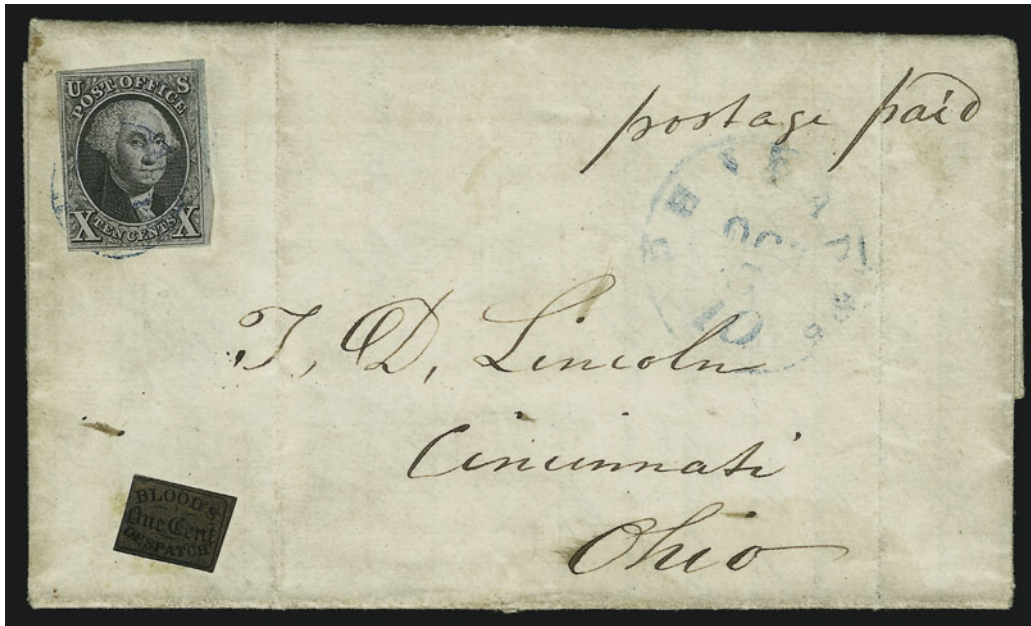 U S
POST OFFICE
X TEN CENTS X
postage paid
OCT
10
T, D, Lincoln
Cincinnati
Ohio
BLOOD'S
One Cent
DESPATCH